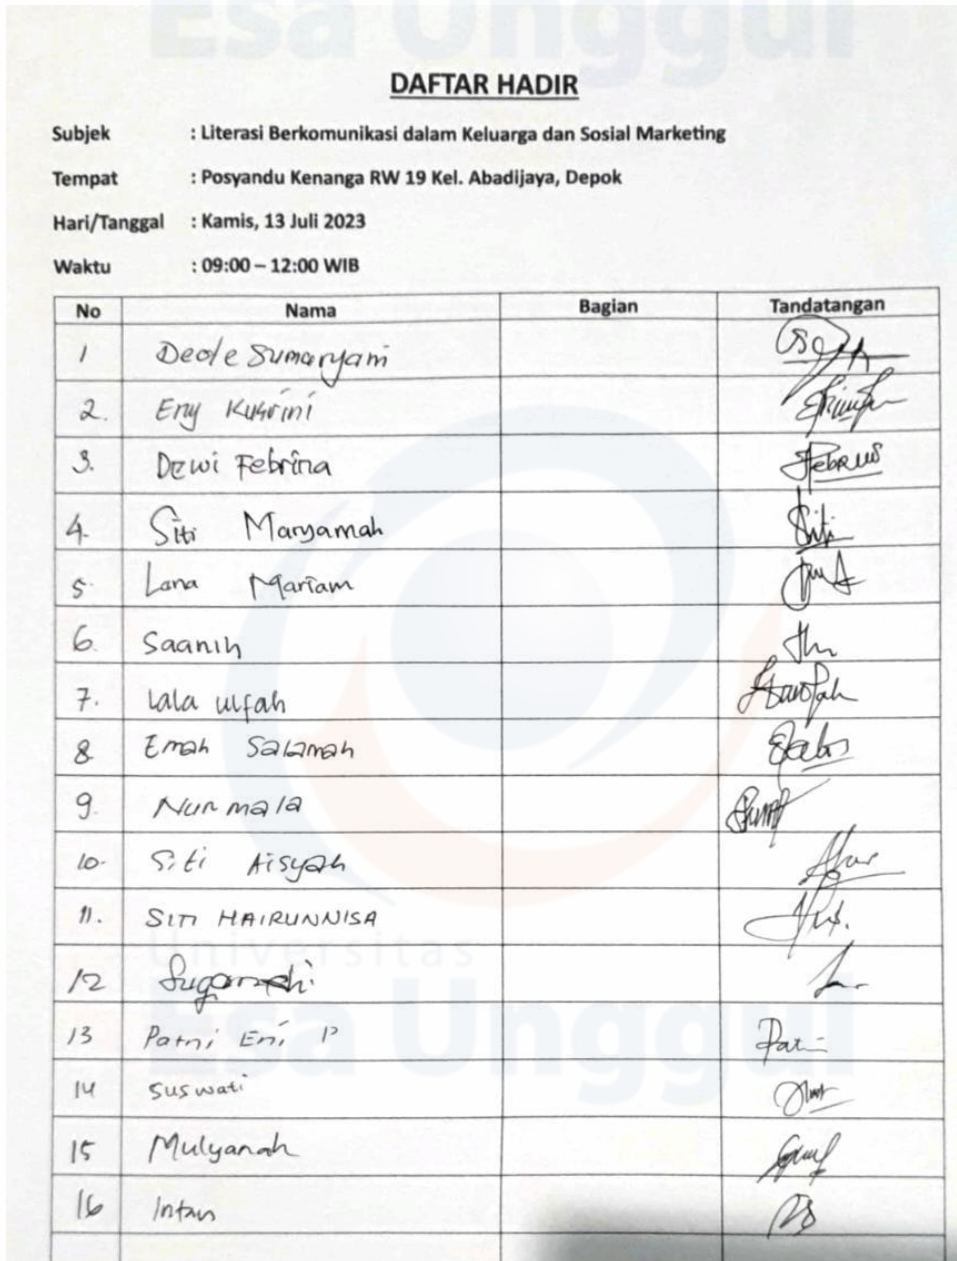 Esa Unggul
DAFTAR HADIR
Subjek : Literasi Berkomunikasi dalam Keluarga dan Sosial Marketing
Tempat : Posyandu Kenanga RW 19 Kel. Abadijaya, Depok
Hari/Tanggal : Kamis, 13 Juli 2023
Waktu : 09:00 – 12:00 WIB
No Nama Bagian Tandatangan
1 Dede Sumaryani
2. Eny Kusrini
3. Dewi Febrina
4. Siti Maryamah Siti
5. Lana Mariam
6. Saanih
7. Lala ulfah
8 Emah Salamah
9. Nurmala
10. Siti Aisyah
11. SITI HAIRUNNISA
Universitas
12 Sugandhi
Esa Unggul
13 Patni Eni P
14 Suswati
15 Mulyanah
16 Intan